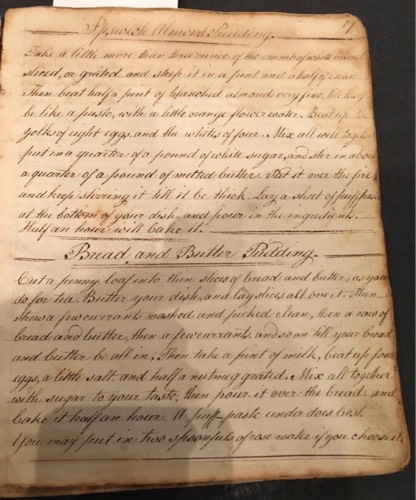 Ipswich Almond Pudding. 17
Take a little more than three ounces of the crumb of white bread
sliced, or grated and steep it in a pint and a half of cream
Then beat half a pint of blanched almonds very fine, till they
be like a paste, with a little orange flower water. Beat up the
yolks of eight eggs, and the whites of four. Mix all well together
put in a quarter of a pound of white sugar, and stir in about
a quarter of a pound of melted butter. Set it over the fire
and keep stirring it till it be thick. Lay a sheet of puff paste
at the bottom of your dish, and pour in the ingredients.
Half an hour will bake it.
Bread and Butter Pudding.
Cut a penny loaf into thin slices of bread and butter, as you
do for tea. Butter your dish, and lay slices all over it. Then
strew a few currants washed and picked clean, then a row of
bread and butter, then a few currants, and so on till your bread
and butter be all in; Then take a pint of milk, beat up four
eggs, a little salt and half a nutmeg grated. Mix all together
with sugar to your taste; then pour it over the bread, and
bake it half an hour. A puff paste under does best.
You may put in two spoonfuls of rose water if you choose it.